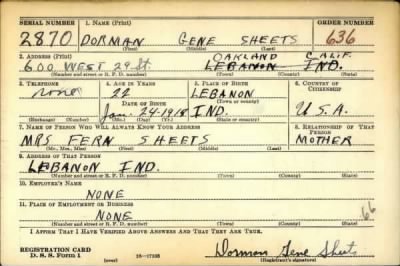 SERIAL NUMBER 1. NAME (Print) ORDER NUMBER
2870 DORMAN GENE SHEETS 636
(First) (Middle) (Last)
2. ADDRESS (Print) OAKLAND CALIF.
600 WEST 29 St. LEBANON IND.
(Number and street or R. F. D. number) (Town) (County) (State)
3. TELEPHONE 4. AGE IN YEARS 5. PLACE OF BIRTH 6. COUNTRY OF CITIZENSHIP
None 22 LEBANON
DATE OF BIRTH (Town or county)
Jan. 24-1918 IND. U.S.A.
(Exchange) (Number) (Mo.) (Day) (Yr.) (State or country)
7. NAME OF PERSON WHO WILL ALWAYS KNOW YOUR ADDRESS 8. RELATIONSHIP OF THAT PERSON
MRS FERN SHEETS MOTHER
(Mr., Mrs., Miss) (First) (Middle) (Last)
9. ADDRESS OF THAT PERSON
LEBANON IND.
(Number and street or R. F. D. number) (Town) (County) (State)
10. EMPLOYER'S NAME
NONE
11. PLACE OF EMPLOYMENT OR BUSINESS
NONE
(Number and street or R. F. D. number) (Town) (County) (State)
I AFFIRM THAT I HAVE VERIFIED ABOVE ANSWERS AND THAT THEY ARE TRUE.
REGISTRATION CARD
D. S. S. Form 1 (over) Dorman Gene Sheets
(Registrant's signature)